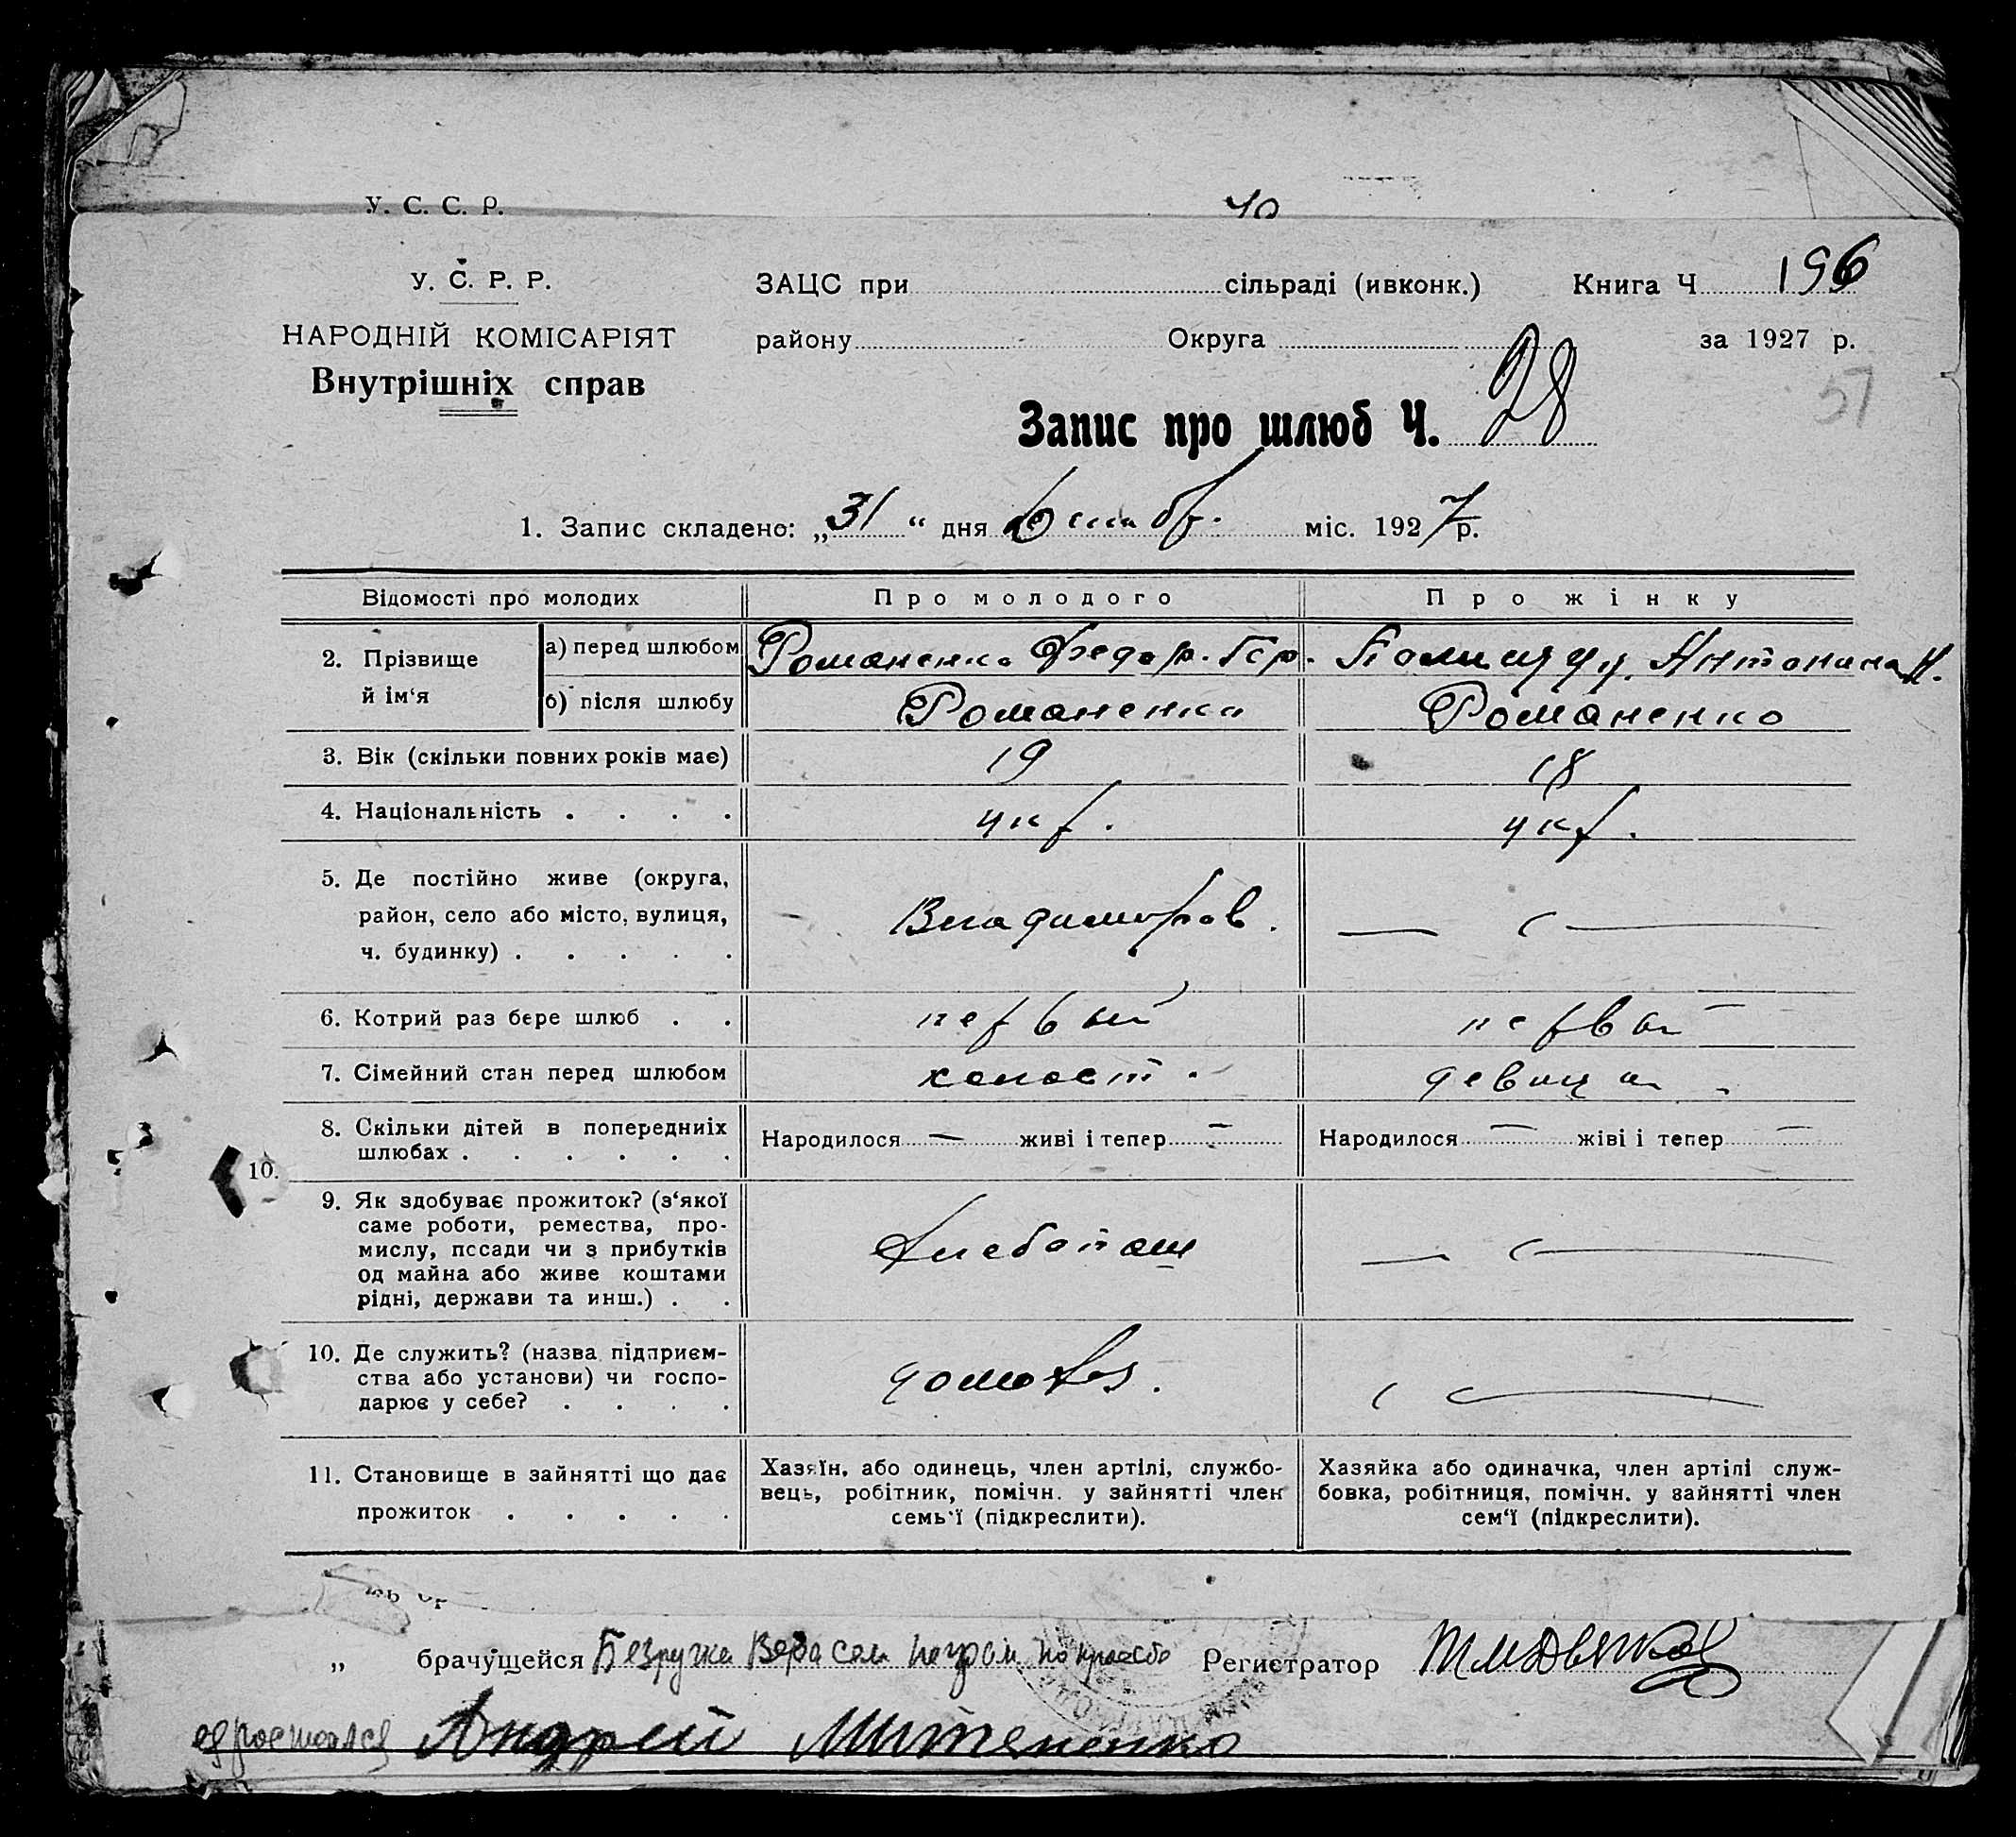 У. С. С. Р.
У. С. Р. Р.
НАРОДНІЙ КОМІСАРІЯТ
Внутрішніх справ
ЗАЦС при сільраді (ивконк.) Книга Ч 196
району Округа за 1927 р.
57
Запис про шлюб Ч. 28
1. Запис складено: „31“ дня Октябр. міс. 1927 р.
Відомості про молодих Про молодого Про жінку
2. Прізвище й ім‘я а) перед шлюбом Романенко Федор. Гр. Антонина
б) після шлюбу Романенко Романенко
3. Вік (скільки повних років має) 19 18
4. Національність . . . . укр. укр.
5. Де постійно живе (округа,
район, село або місто, вулиця, Владимиров. — „ —
ч. будинку) . . . . .
6. Котрий раз бере шлюб . . первый первый
7. Сімейний стан перед шлюбом холост. девица
8. Скільки дітей в попередниіх Народилося — живі і тепер — Народилося — жіві і тепер —
шлюбах . . . . . .
10.
9. Як здобуває прожиток? (з‘якої
саме роботи, ремества, про-
мислу, пссади чи з прибутків Хлебопаш — „ —
од майна або живе коштами
рідні, держави та инш.) . .
10. Де служить? (назва підприєм-
ства або установи) чи госпо- домохоз. „ —
дарює у себе? . . . .
11. Становище в зайнятті що дає Хазяїн, або одинець, член артілі, службо- Хазяйка або одиначка, член артілі служ-
прожиток . . . . . вець, робітник, помічн. у зайнятті член бовка, робітниця, помічн. у зайнятті член
семь‘ї (підкреслити). сем‘ї (підкреслити).
„ брачущейся Безручка Вера Регистратор
Андрей Митяненко